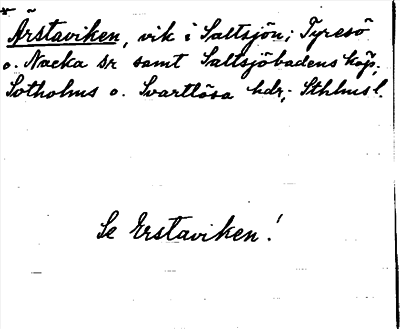 * Årstaviken, vik i Saltsjön; Tyresö
o. Nacka sr samt Saltsjöbadens köp.,
Sotholms o. Svartlösa hdr; Sthlms l.
Se Erstaviken!